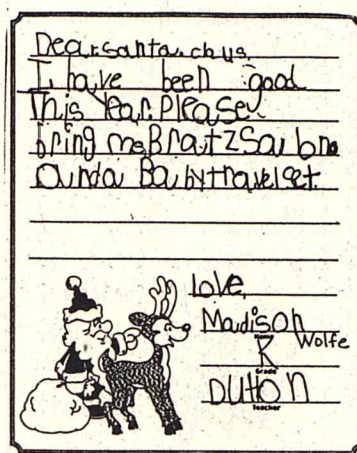 Dear santa chus
I have been good
This Year. Please
bring me Bratz Salone
and a Baby travel set.
Love,
Madison Wolfe
Name
K
Grade
Dutton
Teacher